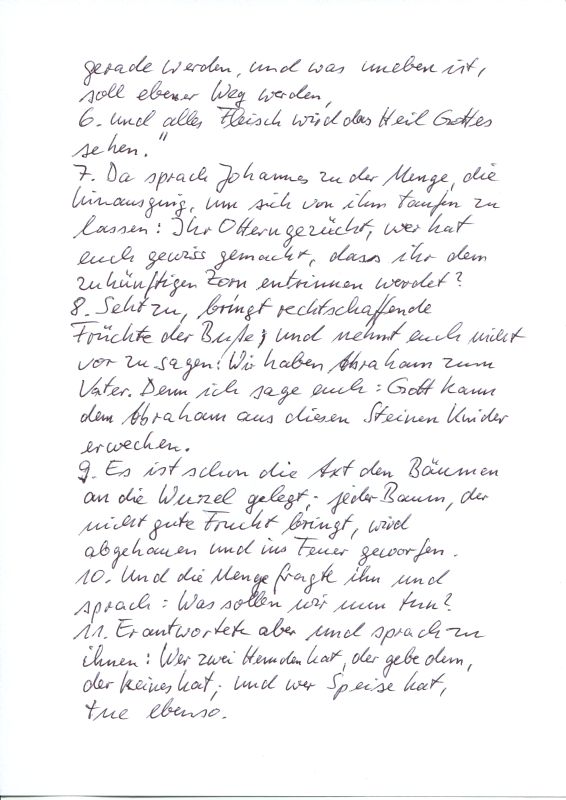 gerade werden, und was uneben ist,
soll ebener Weg werden,
6. und alles Fleisch wird das Heil Gottes
sehen."
7. Da sprach Johannes zu der Menge, die
hinausging, um sich von ihm taufen zu
lassen: Ihr Otterngezücht, wer hat
euch gewiss gemacht, dass ihr dem
zukünftigen Zorn entrinnen werdet?
8. Seht zu, bringt rechtschaffende
Früchte der Buße; und nehmt euch nicht
vor zu sagen: Wir haben Abraham zum
Vater. Denn ich sage euch: Gott kann
dem Abraham aus diesen Steinen Kinder
erwecken.
9. Es ist schon die Axt den Bäumen
an die Wurzel gelegt; jeder Baum, der
nicht gute Frucht bringt, wird
abgehauen und ins Feuer geworfen.
10. Und die Menge fragte ihn und
sprach: Was sollen wir nun tun?
11. Er antwortete aber und sprach zu
ihnen: Wer zwei Hemden hat, der gebe dem,
der keines hat; und wer Speise hat,
tue ebenso.